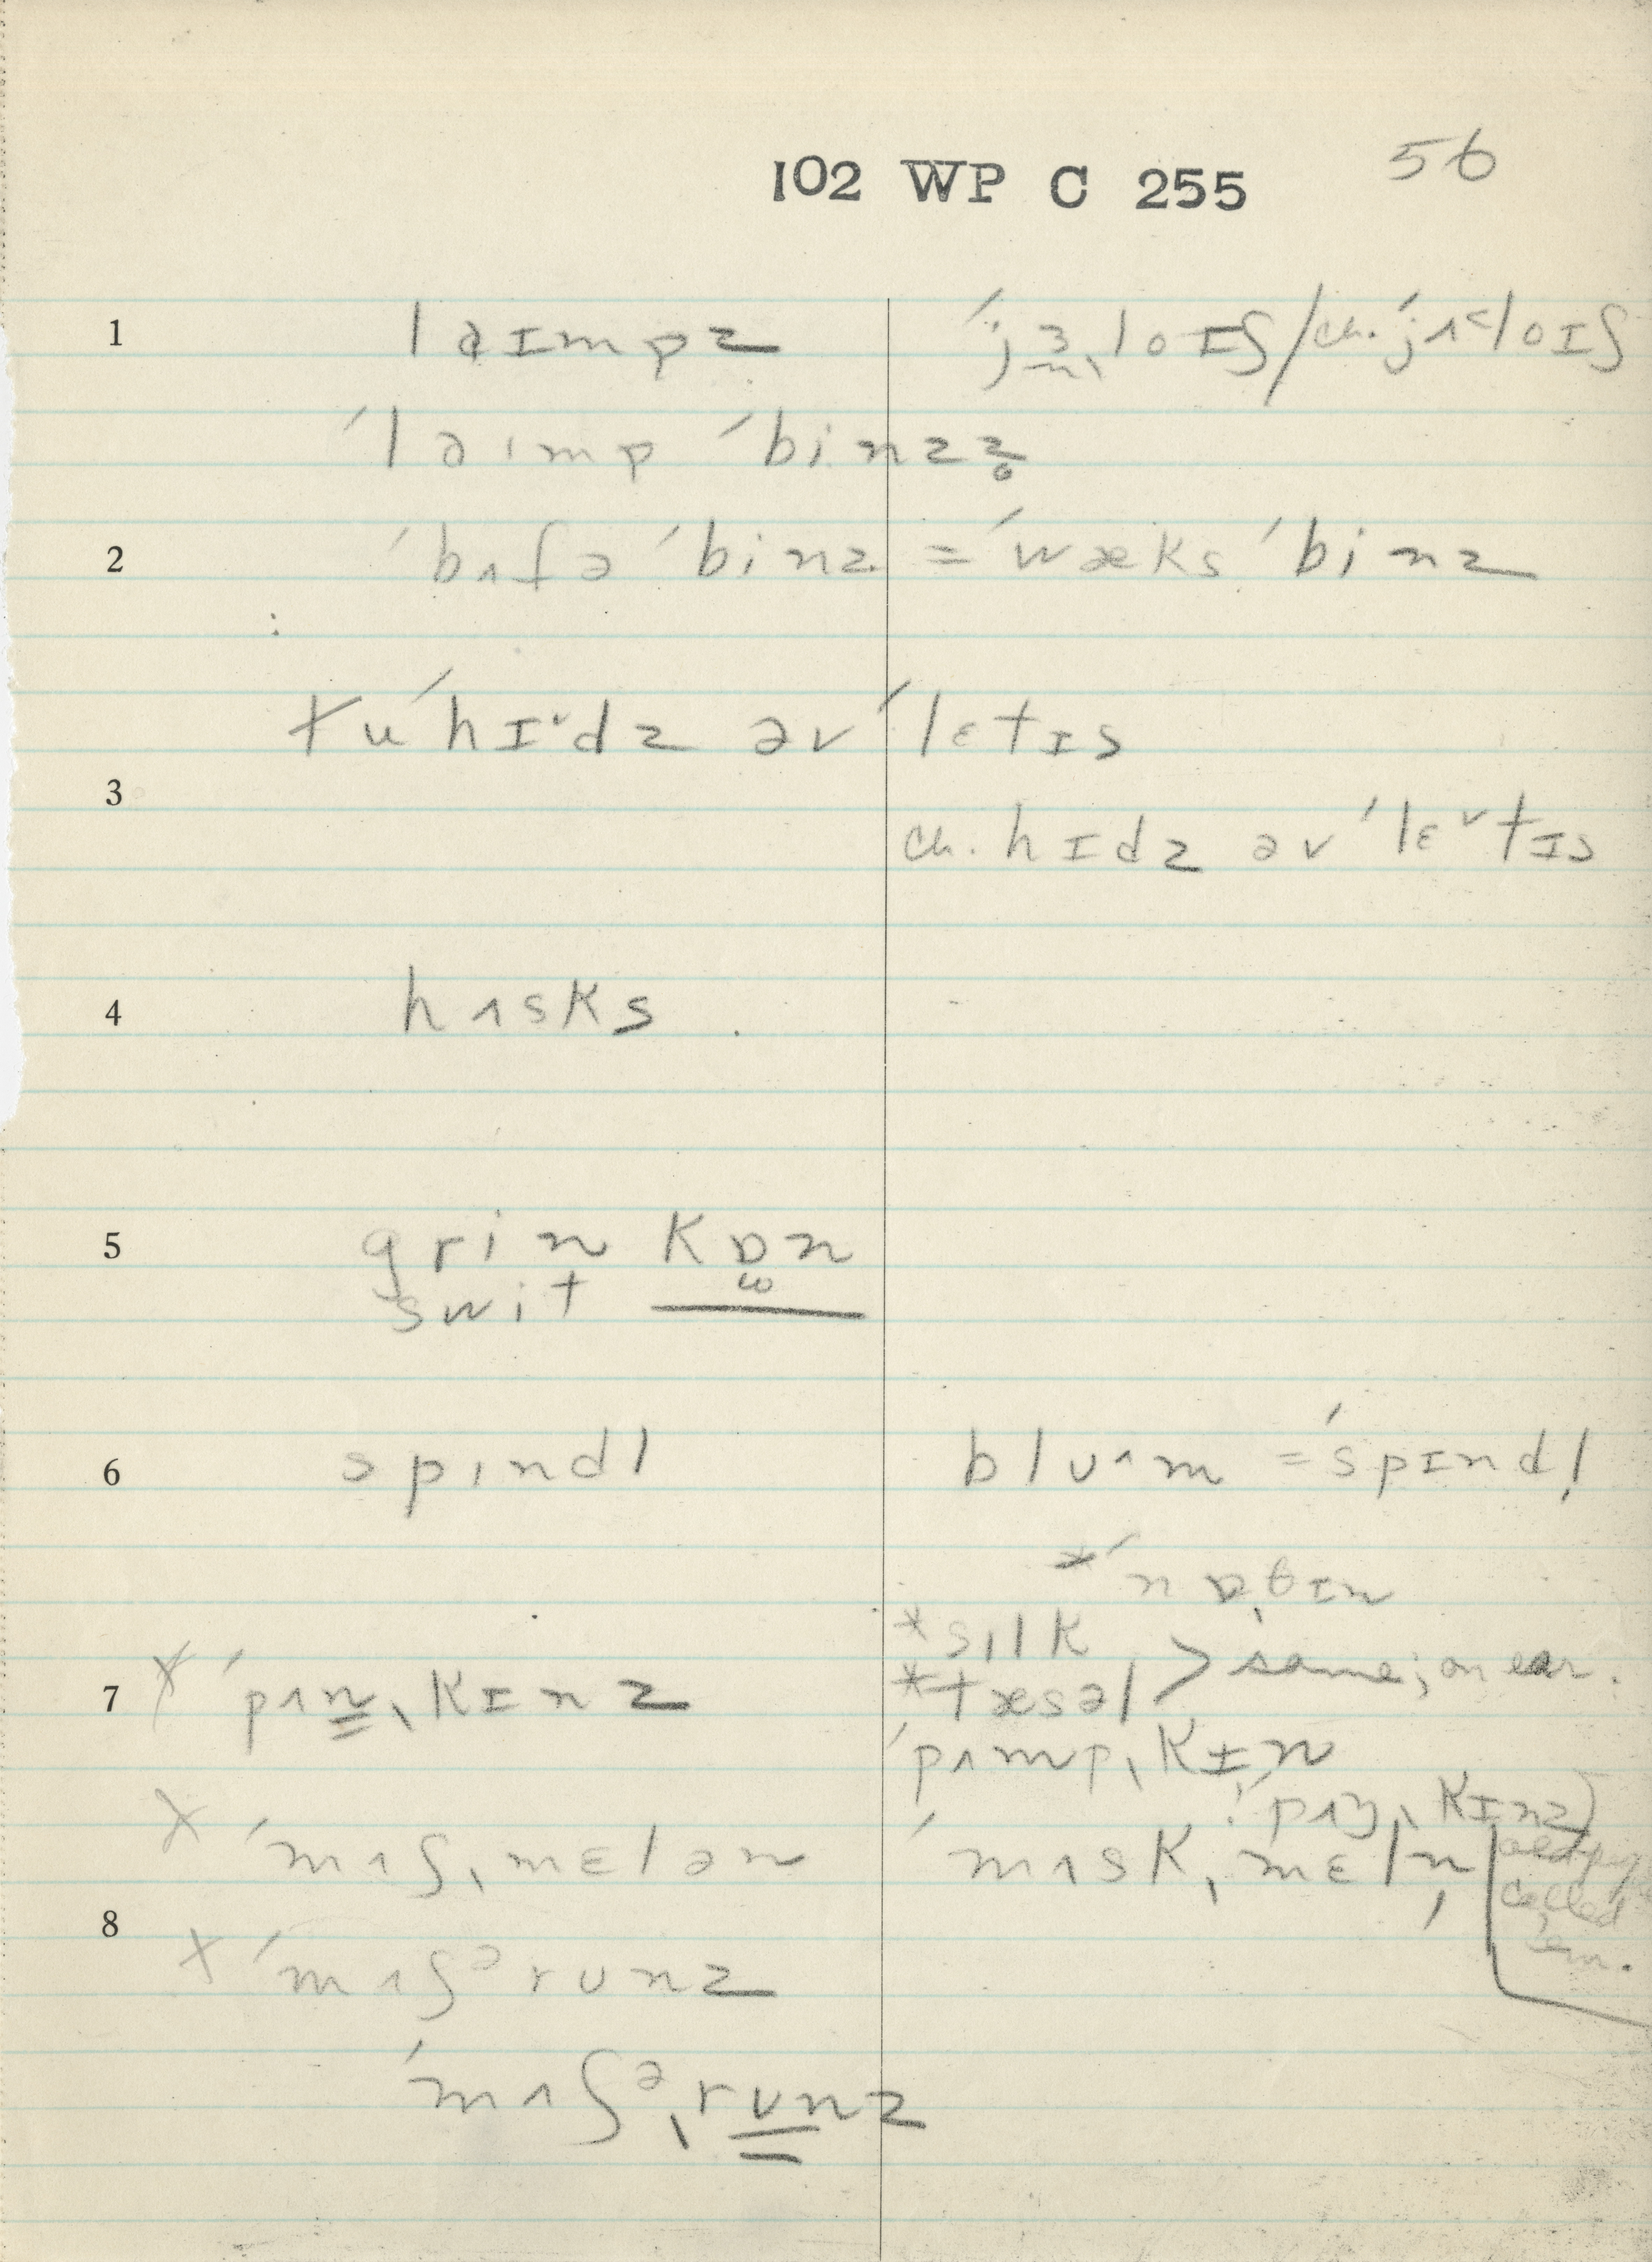 102 WP C 255 56
1 laɪmpz ˈjɜˌloɪʃ/ch. ˈjʌ˂loɪʃ
ˈlaɪmp ˈbinzz̥
2 ˈbʌfə ˈbinz = ˈwæks ˈbinz
tu ˈhɪ˅dz əv ˈlɛtɪs
3
ch. hɪdz əv ˈlɛ˅tɪs
4 hʌsks
5 grin kɒn
swit
6 spɪndl blu^m = ˈspɪndl̩
* ˈnɒ̩θɪn
* sɪlk
* tæsəl > same; on ear.
7 x ˈpʌnˌkɪnz
ˈpʌmpˌkɪn
! ˈpʌŋˌkɪnz)
x ˈmʌʃˌmɛlən ˈmʌskˌmɛln̩ called
8 'em.
x ˈmʌʃᵊrunz
ˈmʌʃᵊˌrunz